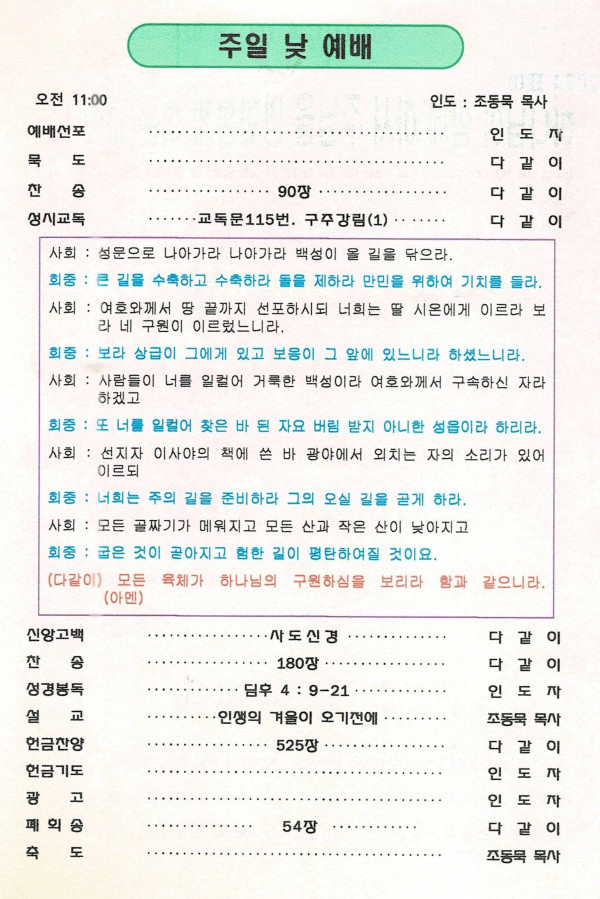 주일 낮 예배
오전 11:00 인도 : 조동묵 목사
예배선포 ........................................ 인 도 자
묵 도 ........................................ 다 같 이
찬 송 .................. 90장 .................. 다 같 이
성시교독 .......교독문115번. 구주강림(1) ....... 다 같 이
사회 : 성문으로 나아가라 나아가라 백성이 올 길을 닦으라.
회중 : 큰 길을 수축하고 수축하라 돌을 제하라 만민을 위하여 기치를 들라.
사회 : 여호와께서 땅 끝까지 선포하시되 너희는 딸 시온에게 이르라 보
라 네 구원이 이르렀느니라.
회중 : 보라 상급이 그에게 있고 보응이 그 앞에 있느니라 하셨느니라.
사회 : 사람들이 너를 일컬어 거룩한 백성이라 여호와께서 구속하신 자라
하겠고
회중 : 또 너를 일컬어 찾은 바 된 자요 버림 받지 아니한 성읍이라 하리라.
사회 : 선지자 이사야의 책에 쓴 바 광야에서 외치는 자의 소리가 있어
이르되
회중 : 너희는 주의 길을 준비하라 그의 오실 길을 곧게 하라.
사회 : 모든 골짜기가 메워지고 모든 산과 작은 산이 낮아지고
회중 : 굽은 것이 곧아지고 험한 길이 평탄하여질 것이요.
(다같이) 모든 육체가 하나님의 구원하심을 보리라 함과 같으니라.
(아멘)
신앙고백 .................사도신경 .............. 다 같 이
찬 송 .................. 180장.................. 다 같 이
성경봉독 ............. 딤후 4 : 9-21 ............. 인 도 자
설 교 ..........인생의 겨울이 오기전에 ......... 조동묵 목사
헌금찬양 .................. 525장.................. 다 같 이
헌금기도 ........................................ 인 도 자
광 고 ........................................ 인 도 자
폐 회 송 ............... 54장 ............ 다 같 이
축 도 ........................................ 조동묵 목사